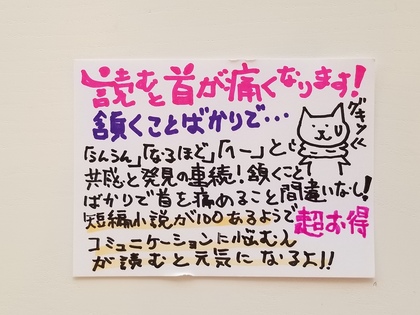 読むと首が痛くなります!
頷くことばかりで・・・
グキッ
「うんうん」「なるほど」「へー」と
共感と発見の連続!頷くこと
ばかりで首を痛めること間違いなし!
短編小説が100あるようで超お得
コミュニケーションに悩む人
が読むと元気になるよ!!